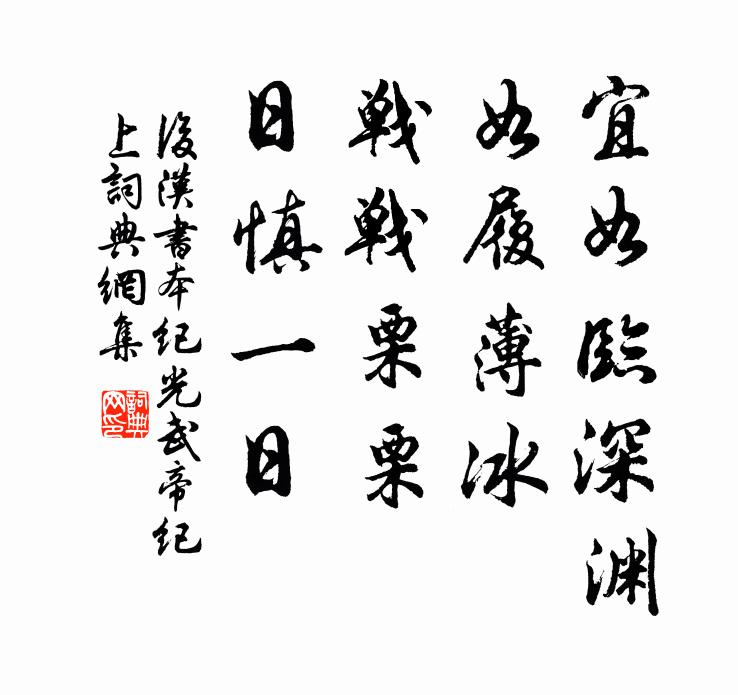 宜如臨深渊
如履薄冰
戦戦栗栗
日慎一日
後漢書本紀光武帝紀
上詞典網集
詞典
网印